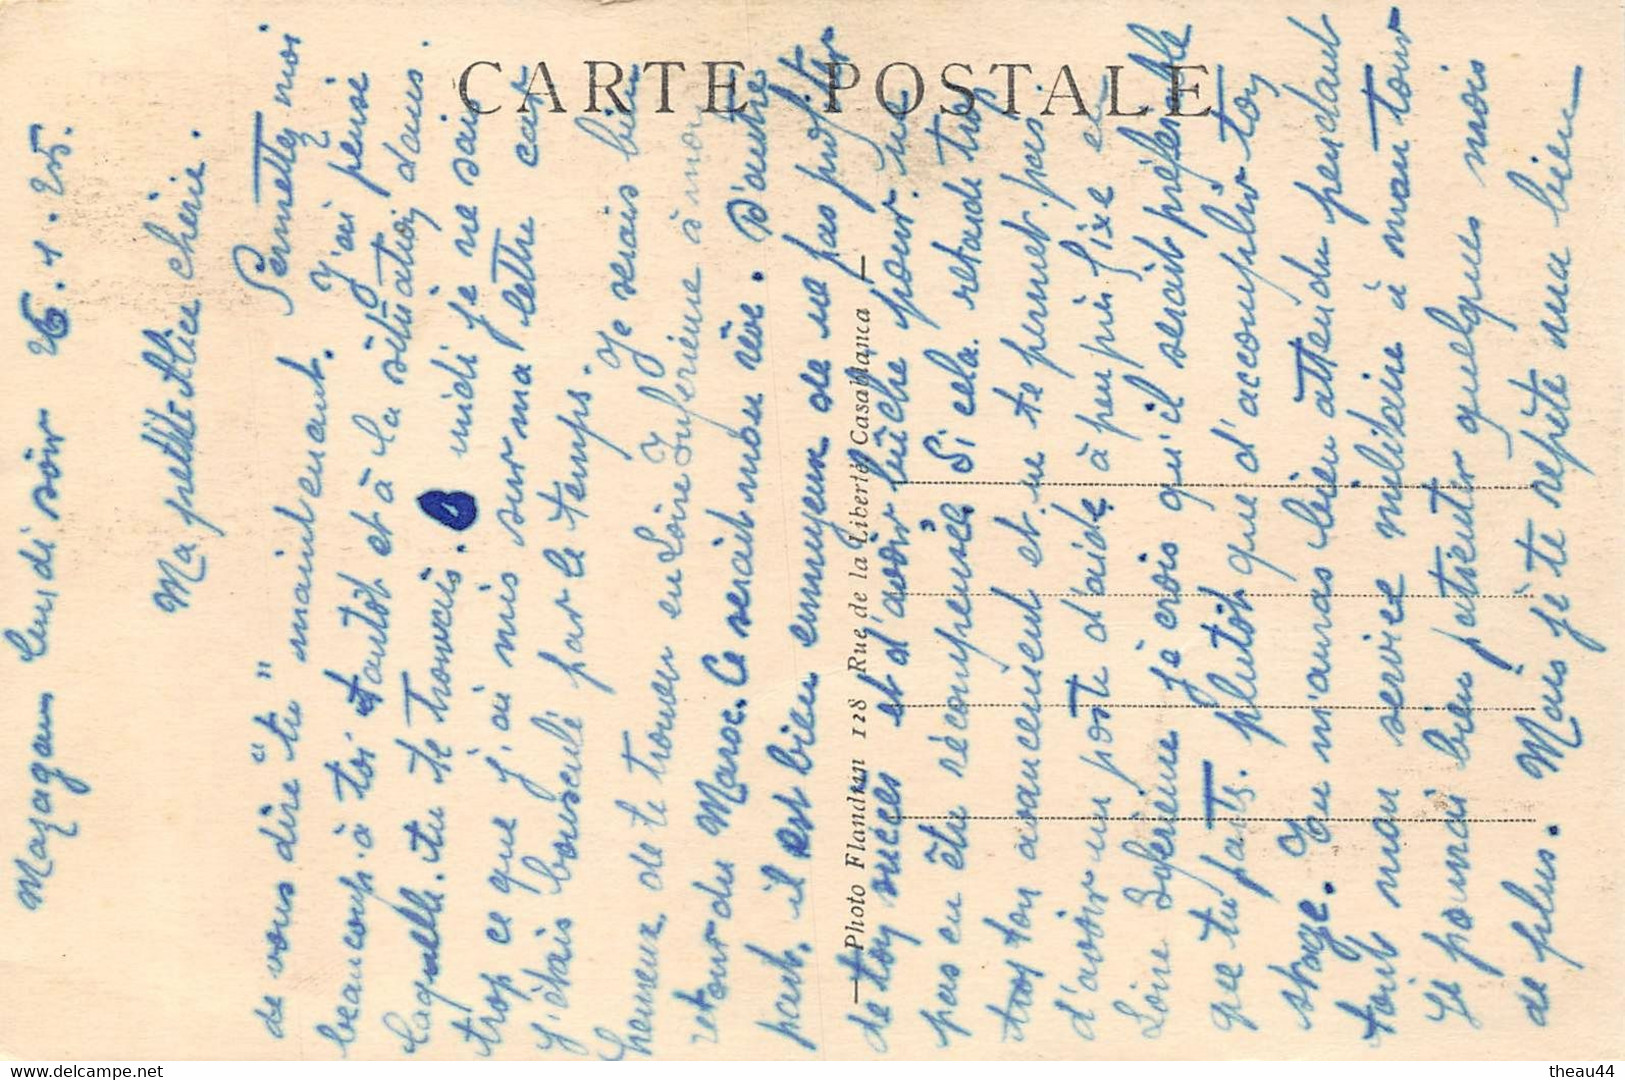 CARTE POSTALE
Mazagan lundi soir 26.1.25.
Ma petite Alice chérie.
Permettez moi
de vous dire "tu" maintenant. J'ai pensé
beaucoup à toi tantôt et à la situation dans
laquelle tu te trouvais. midi je ne sais
trop ce que j'ai mis sur ma lettre car
j'étais bousculé par le temps. Je serais bien
heureux de te trouver en Loire Inférieure à mon
retour du Maroc. Ce serait mon rêve. D'autre
part, il est bien ennuyeux de ne pas profiter
de ton succès et d'avoir bûché pour ne
pas en être récompensée. Si cela retarde trop
trop ton avancement et ne te permet pas
d'avoir un poste d'aide à peu près fixe en
Loire Inférieure je crois qu'il serait préférable
que tu partes. plutôt que d'accomplir ton
stage. Tu m'auras bien attendu pendant
tout mon service militaire à mon tour
je pourrai bien patienter quelques mois
de plus. Mais je te répète ma bien
Photo Flandrin 128 Rue de la Liberté Casablanca
delcampe.net
theau44